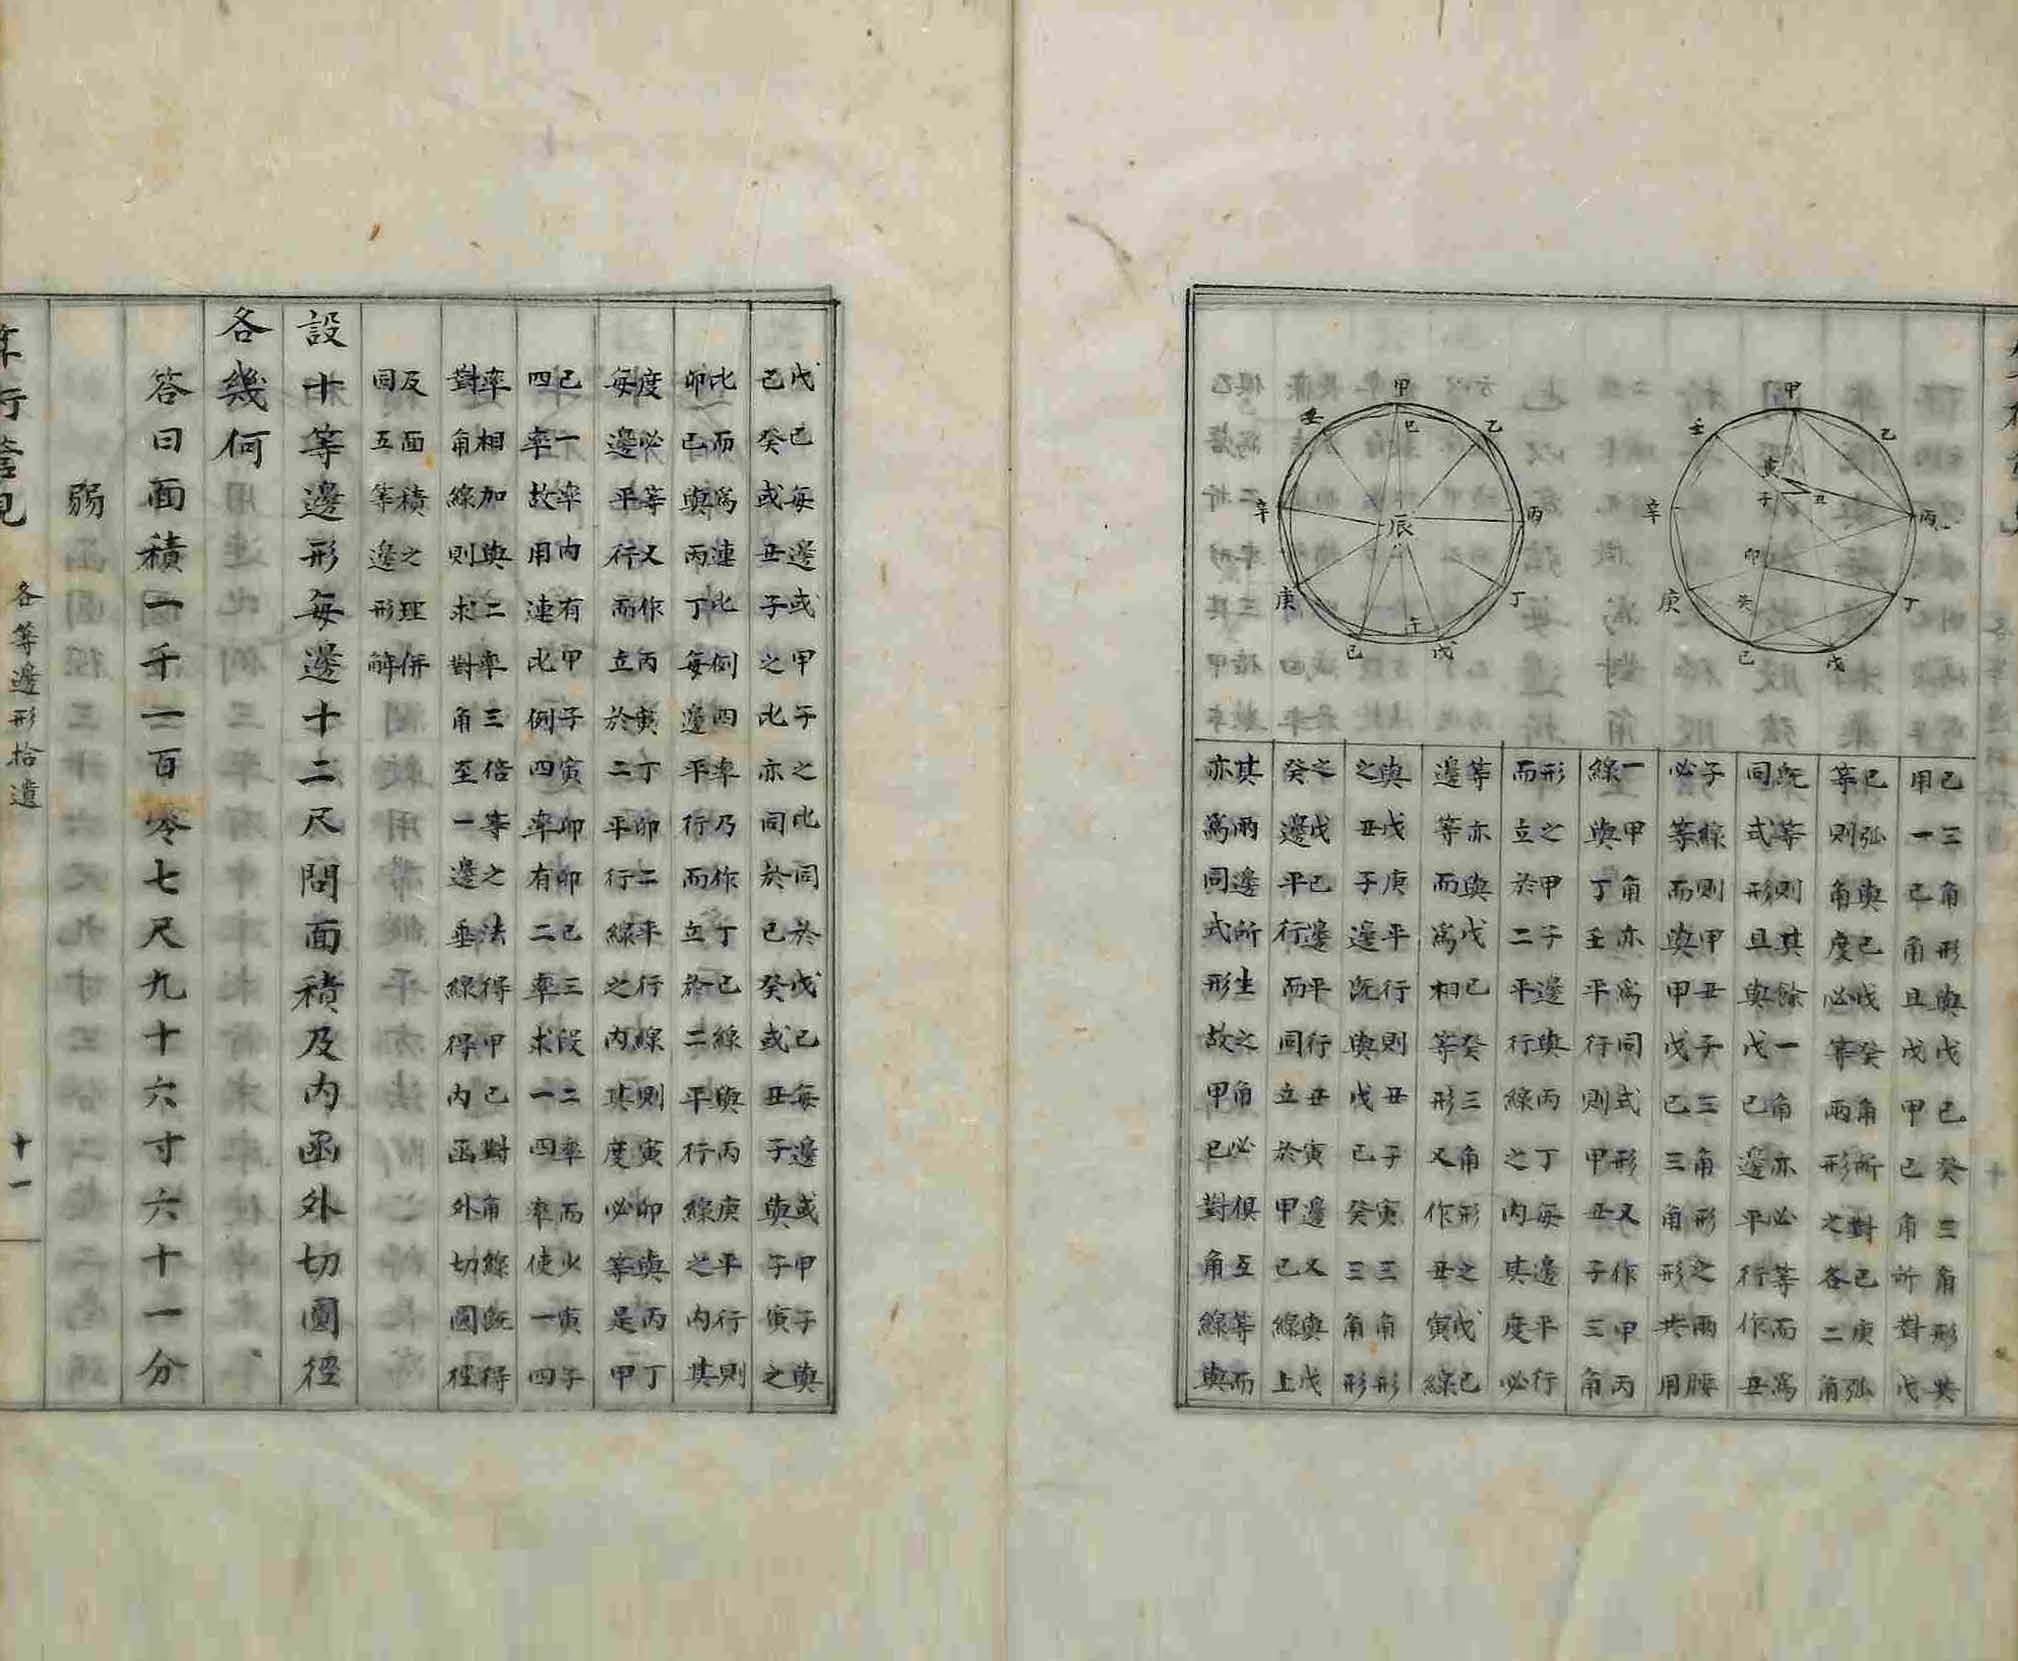 甲
乙
丙
丁
戊
己
庚
辛
壬
寅
子
丑
卯
癸
甲
乙
丙
丁
戊
己
庚
辛
壬
巳
辰
午
己三角形與戊己癸三角形共
用一己角且戊甲己角所對戊
己弧與己戊癸角所對己庚弧
等則角度必等兩形之各二角
既等則其餘一角亦必等而爲
同式形且與戊己邊平行作丑
子線則甲丑子三角形之兩腰
必等而與甲戊己三角形共用
一甲角亦爲同式形又作甲丙
線與丁壬平行則甲丑子三角
形之甲子邊與丙丁每邊平行
而立於二平行線之内其度必
等亦與戊己癸三角形之戊己
邊等而爲相等形又作丑寅線
與戊庚平行則丑子寅三角形
之丑子邊既與戊己癸三角形
之戊己邊平行丑寅邊又與戊
癸邊平行而同立於甲己線上
其兩邊所生之角必俱互等而
亦爲同式形故甲己對角線與
戊己每邊或甲子之比同於戊己每邊或甲子與
己癸或丑子之比亦同於己癸或丑子與子寅之
比而爲連比例四率乃作丁己線與丙庚平行則
卯己與丙丁每邊平行而立於二平行線之内其
度必等又作丙寅丁卯二平行線則寅卯與丙丁
每邊平行而立於二平行線之内其度必等是甲
己一率内有甲子寅卯卯己三段二率而少寅子
四率故用連比例四率有二率求一四率使一四
率相加與二率三倍等之法得甲己對角線既得
對角線則求對角至一邊垂線得内函外切圓徑
及面積之理併
同五等邊形解
設十等邊形每邊十二尺問面積及内函外切圓徑
各幾何
答曰面積一千一百零七尺九十六寸六十一分
弱
行管見 各等邊形拾遺 十一